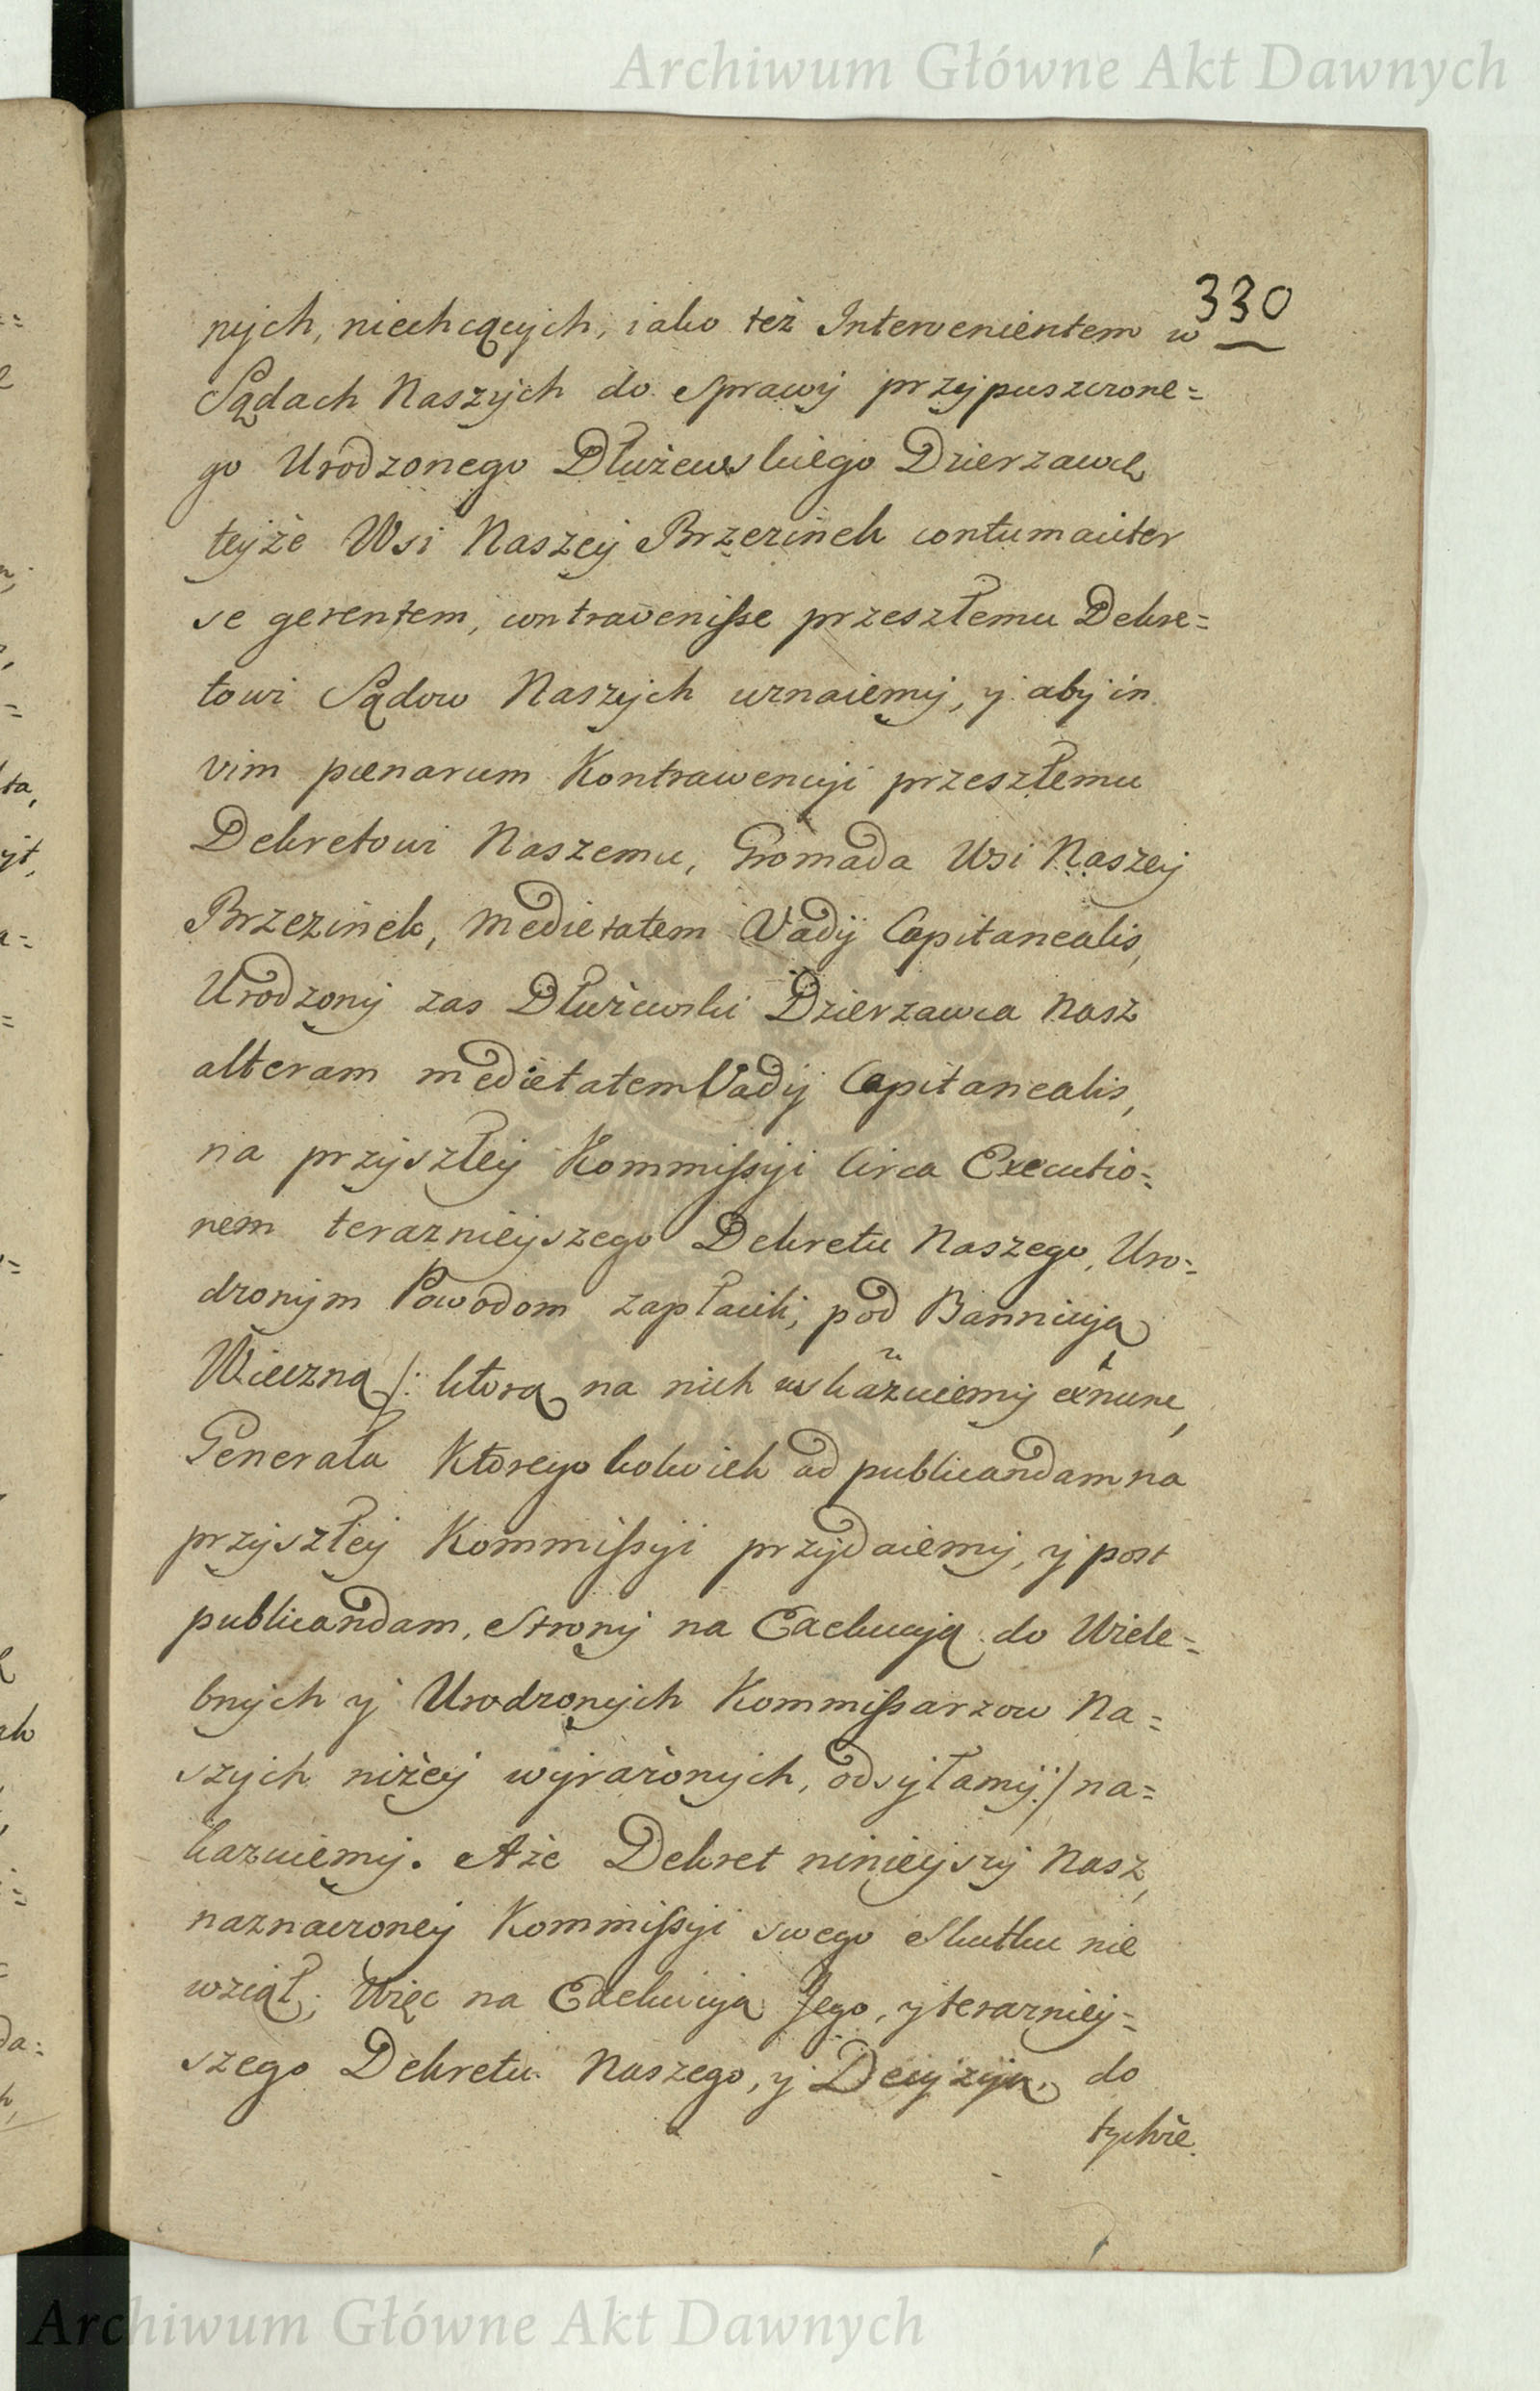 Archiwum Główne Akt Dawnych
330
nych, niechcących, iako też Intervenientem w
Sądach Naszych do Sprawy przypuszczone=
go Urodzonego Dłużewskiego Dzierzawcę
teyże Wsi Naszey Brzezinek contumaciter
se gerentem, contravenisse przeszłemu Dekre=
towi Sądow Naszych uznaiemy, y aby in
vim pœnarum Kontrawencyi przeszłemu
Dekretowi Naszemu, Gromada Wsi Naszey
Brzezinek, Medietatem Vadij Capitanealis,
Urodzony zas Dłużewski Dzierzawca Nasz
alteram medietatem Vadij Capitanealis,
na przyszłey Kommissyi circa Executio=
nem teraznieyszego Dekretu Naszego, Uro=
dzonym Powodom zapłacili, pod Bannicyą
Wieczną /: ktorą na nich wskazuiemy ex nunc,
Generała Ktoregokolwiek ad publicandam na
przyszłey Kommissyi przydaiemy, y post
publicandam, Strony na Exekucyą do Wiele=
bnych y Urodzonych Kommissarzow Na=
szych niżey wyrażonych, odsyłamy :/ na=
kazuiemy. Aże Dekret ninieyszy Nasz,
naznaczoney Kommissyi swego Skutku nie
wziął, Więc na Exekucyą Jego, y terazniey=
szego Dekretu Naszego, y Decyzyą, do
tychże
Archiwum Główne Akt Dawnych